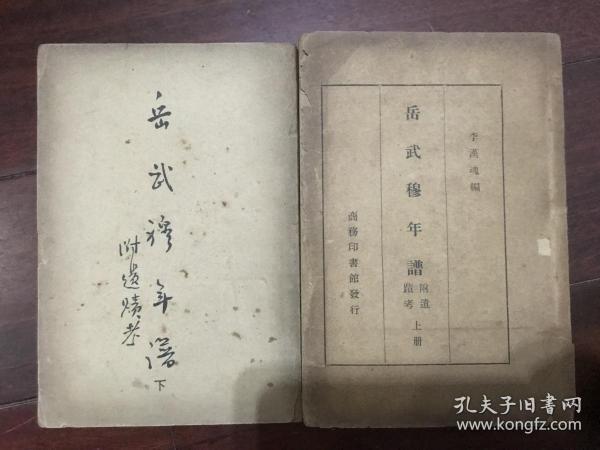 岳武穆年譜
附遺蹟考
下
李漢魂編
岳武穆年譜
附遺
蹟考
上册
商務印書館發行
孔夫子旧书网
www.kongfz.com